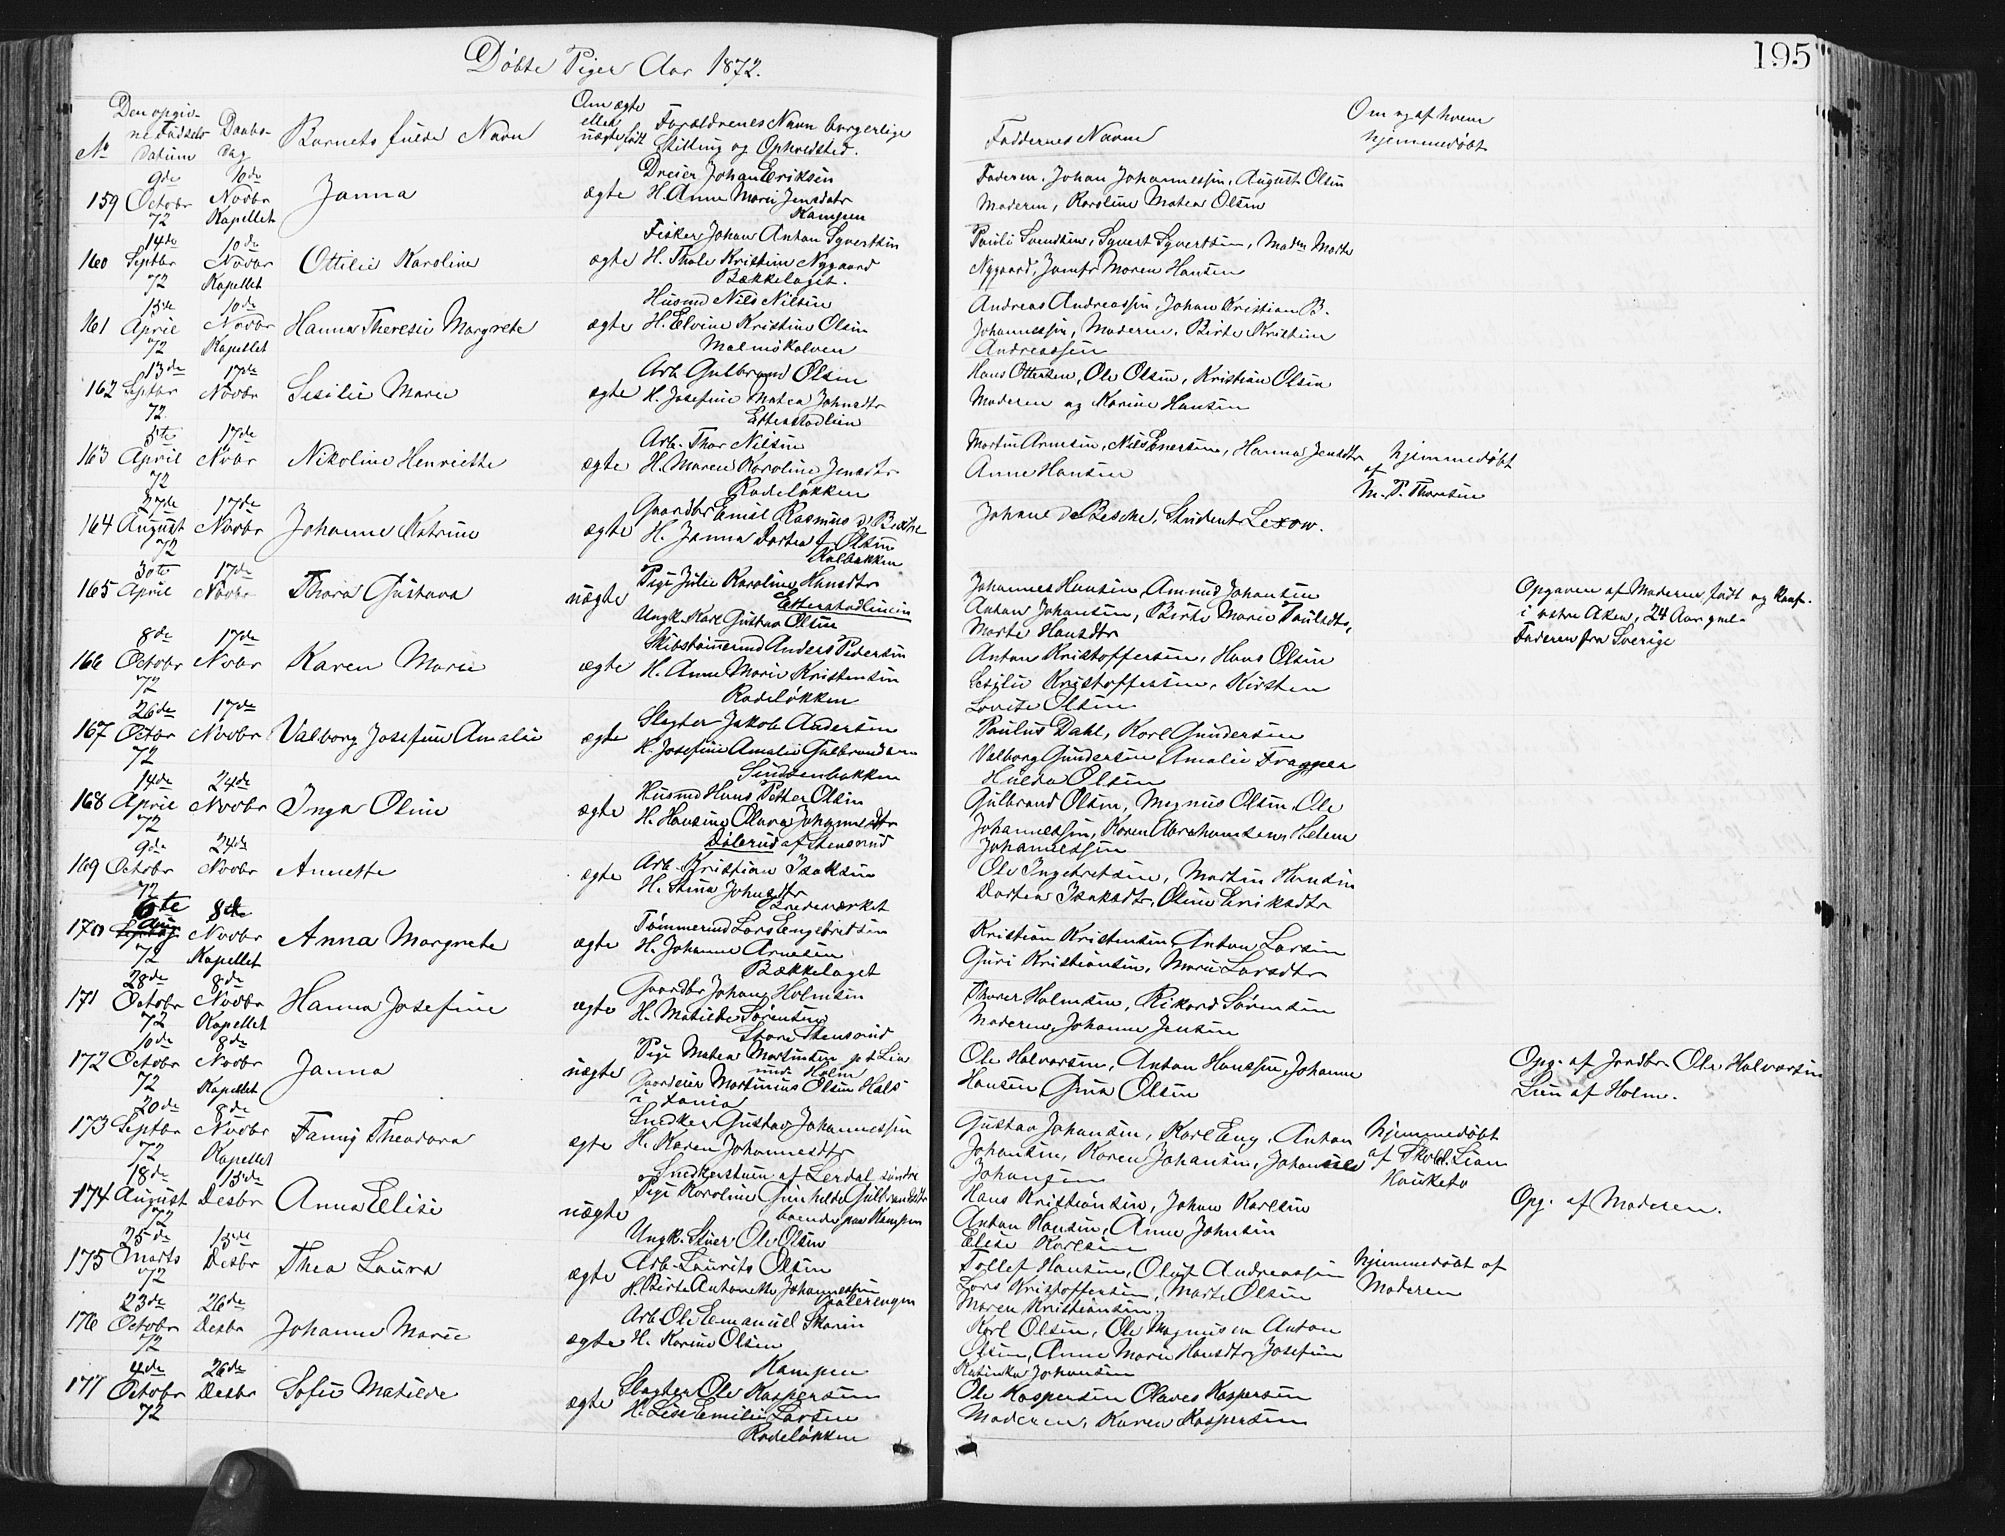 Døbte Piger Aar 1872.
195
No
Den opgivne Fødsels Datum
Daabsdag
Barnets fulde Navn
Om ægte eller uægte født
Forældrenes Navn borgerlige Stilling og Opholdsted.
Faddernes Navne
Om og af hvem hjemmedøbt
159 9de Octobr 72 10de Novbr Kapellet Janna ægte Dreier Johan Eriksen
H. Anne Marie Jensdatr
Kampen
Faderen, Johan Johannessen, August Olsen
Moderen, Karoline Matea Olsen
160 14de Septbr 72 10de Novbr Kapellet Ottilie Karoline ægte Fisker Johan Anton Syvertsen
H. Thale Kristine Nygaard
Bækkelaget.
Pauli Svendsen, Syvert Syvertsen, Madm Marte
Nygaard, Jomfr Maren Hansen
161 15de April 72 10de Novbr Kapellet Hanna Theresie Margrete ægte Husmd Nils Nilsen
H. Elvine Kristine Olsen
Malmøkalven
Andreas Andreassen, Johan Kristian B.
Johannessen, Moderen, Birte Kristine
Andreassen
162 13de Septbr 72 17de Novbr Sesilie Marie ægte Arb. Gulbrand Olsen
H. Josefine Matea Johnsdtr
Etterstadlien
Hans Ottersen, Ole Olsen, Kristian Olsen
Moderen og Karine Hansen
163 5te April 72 17de Novbr Nikoline Henriette ægte Arb. Thor Nilsen
H. Maren Karoline Jensdtr
Rodeløkken
Martin Arnesen, Nils Enersen, Hanna Jensdtr
Anne Hansen
hjemmedøbt
af
M. P. Thoresen
164 27de August 72 17de Novbr Johanne Katrine ægte Gaardbr Emil Rasmus d Besche
H. Janna Dortea f. Olsen
Kalbakken
Johan d Besche, Student Lexow.
165 30te April 17de Novbr Thora Gustava uægte Pige Julie Karoline Hansdtr
Etterstadlien
Ungk. Karl Gustav Olsen
Johannes Hansen, Amund Johansen
Anton Johansen, Birte Marie Paulsdtr,
Marte Hansdtr
Opgaven af Moderen, født og konf.
i østre Aker, 24 Aar gml.
Faderen fra Sverige
166 8de Octobr 72 17de Novbr Karen Marie ægte Skibstømermd Anders Pedersen
H. Anne Marie Kristensen
Rodeløkken
Anton Kristoffersen, Hans Olsen
Sesilie Kristoffersen, Kirsten
Lovise Olsen
167 26de Octbr 72 17de Novbr Valborg Josefine Amalie ægte Slagter Jakob Andersen
H. Josefine Amalie Gulbrandsen
Sinsenbakken
Paulus Dahl, Karl Gundersen
Valborg Gundersen Amalie
Hulda Olsen
168 14de April 72 24de Novbr Inga Oline ægte Husmd Hans Petter Olsen
H. Hansine Olava Johannesdtr
Dølerud af Stensrud
Gulbrand Olsen, Magnus Olsen, Ole
Johannessen, Karen Abrahamsen, Helene
Johannessen
169 9de Octobr 72 24de Novbr Annette ægte Arb. Kristian Isaksen
H. Stina Johnsdtr
Ole Ingebretsen, Martin Hansen
Dortea Isaksdtr, Oline Eriksdtr
170 6te Aug 72 8de Novbr Kapellet Anna Margrete ægte Tømmermd Lars Engebretsen
H. Johanne Arnesen
Bækkelaget
Kristian Kristensen, Anton Larsen
Guri Kristiansen, Marie Larsdtr
171 28de Octobr 72 8de Novbr Kapellet Hanna Josefine ægte Gaardbr Johan Holmsen
H. Matilde Sørensen
Store Stensrud
Thorer Holmsen, Rikard Sørensen
Moderen, Johanne Jensen
172 10de Octobr 72 8de Novbr Kapellet Janna uægte Pige Matea Martinsen p t Lien
und Holm
Gaardeier Martinius Olsen Hals
i
Ole Halvorsen, Anton Hanssen, Johanne
Hansen, Gina Olsen
Opg. af Jordbr. Ole Halvorsen
Lien af Holm.
173 20de Septbr 72 8de Novbr Kapellet Fanny Theodora ægte Snedker Gustav Johannessen
H. Karen Johannesdtr
Snedkerstuen af Lerdal søndre
Gustav Johansen, Karl Eng, Anton
Johansen, Karen Johansen, Johanne
Johansen
hjemmedøbt
af Skoleh. Lian
Hauketo
174 18de August 72 15de Desbr Anna Elise uægte Pige Karoline Gunhilde Gulbrandsdtr
boende paa Kampen
Ungk. Stuer Ole Olsen
Hans Kristiansen, Johan Karlsen
Anton Hansen, Anne Johnsen
Elise Karlsen
Opg. af Moderen.
175 25de Marts 72 15de Desbr Thea Laura ægte Arb. Laurits Olsen
H. Birte Antonette Johannessen
Vaalerengen
Tollef Hansen, Oluf Andreassen
Lars Kristoffersen, Marte Olsen
Maren Kristiansen
hjemmedøbt af
Moderen
176 23de Octobr 72 26de Desbr Johanne Marie ægte Arb. Ole Emanuel Skaren
H. Karine Olsen
Kampen
Karl Olsen, Ole Magnussen Anton
Olsen, Anne Marie Hansdtr, Josefine
Katinka Johansen
177 4de Octobr 72 26de Desbr Sofie Matilde ægte Slagter Ole Kaspersen
H. Lise Emilie Larsen
Rodeløkken
Ole Kaspersen Olaves Kaspersen
Moderen, Karen Kaspersen